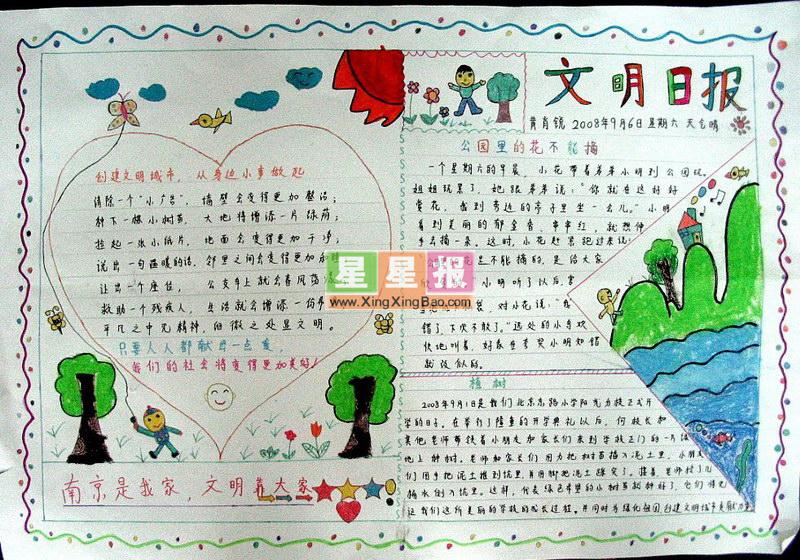 文明日报
肖镜 2008年9月6日 星期六 天气晴
公园里的花不能摘
一个星期六的早晨，小花带着弟弟小明到公园玩。
姐姐玩累了，她跟弟弟说：“你就在这好好
赏花，我到旁边的亭子里坐一会儿。”小明
看到美丽的郁金香、串串红，就想伸
手去摘一朵。这时，小花赶忙跑过来说：
花是不能摘的，是给大家
小明听了以后
对小花说：“我
错了，下次不敢了。”远处的小鸟欢
快地叫着，好象在夸奖小明知错
就改似的。
创建文明城市，从身边小事做起
清除一个“小广告”，墙壁会变得更加整洁；
种下一棵小树苗，大地将增添一片绿荫；
捡起一张小纸片，地面会变得更加干净；
说出一句温暖的话，邻里之间会变得更加
让出一个座位，公交车上就会春风荡漾
救助一个残疾人，生活就会增添一份
平凡之中见精神，细微之处显文明。
只要人人都献出一点爱，
我们的社会将变得更加美好！
星星报
www.XingXingBao.com
植树
2008年9月1日是我们北京东路小学阳光分校正式开
学的日子。在举行了隆重的开学典礼以后，何校长和
其他老师带领着小朋友和家长们来到学校正门的一片
地上种树。老师和家长们用力把树苗插入泥土里，小朋友
们用手把泥土推到坑里并用脚把泥土踩实了。接着，老师
桶水倒入坑里。这样，代表绿色希望的小树苗就种好了，它们将见
证我们这所美丽的学校的成长过程。并同时为绿化祖国，创建文明城市贡献力量
南京是我家，文明靠大家